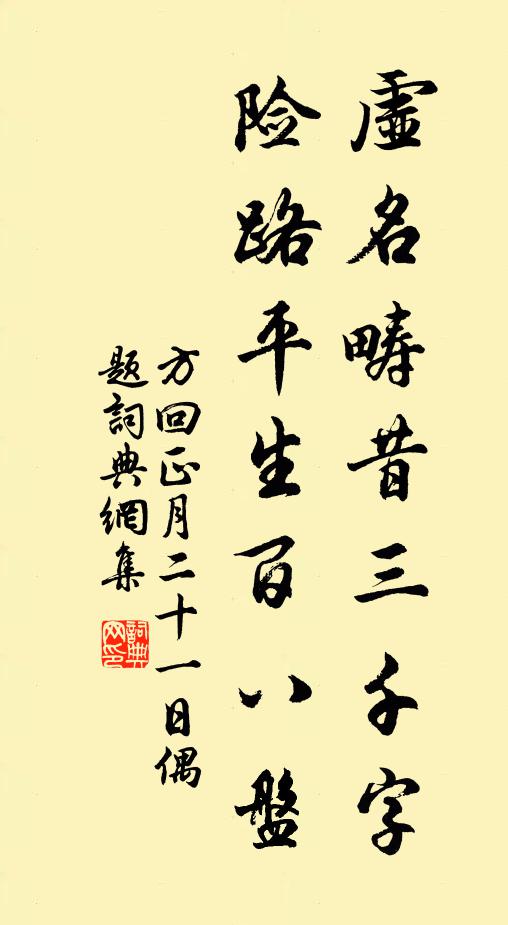 虛名疇昔三千字
险路平生百八盤
方回正月二十一日偶
題詞典網集
詞典
网印